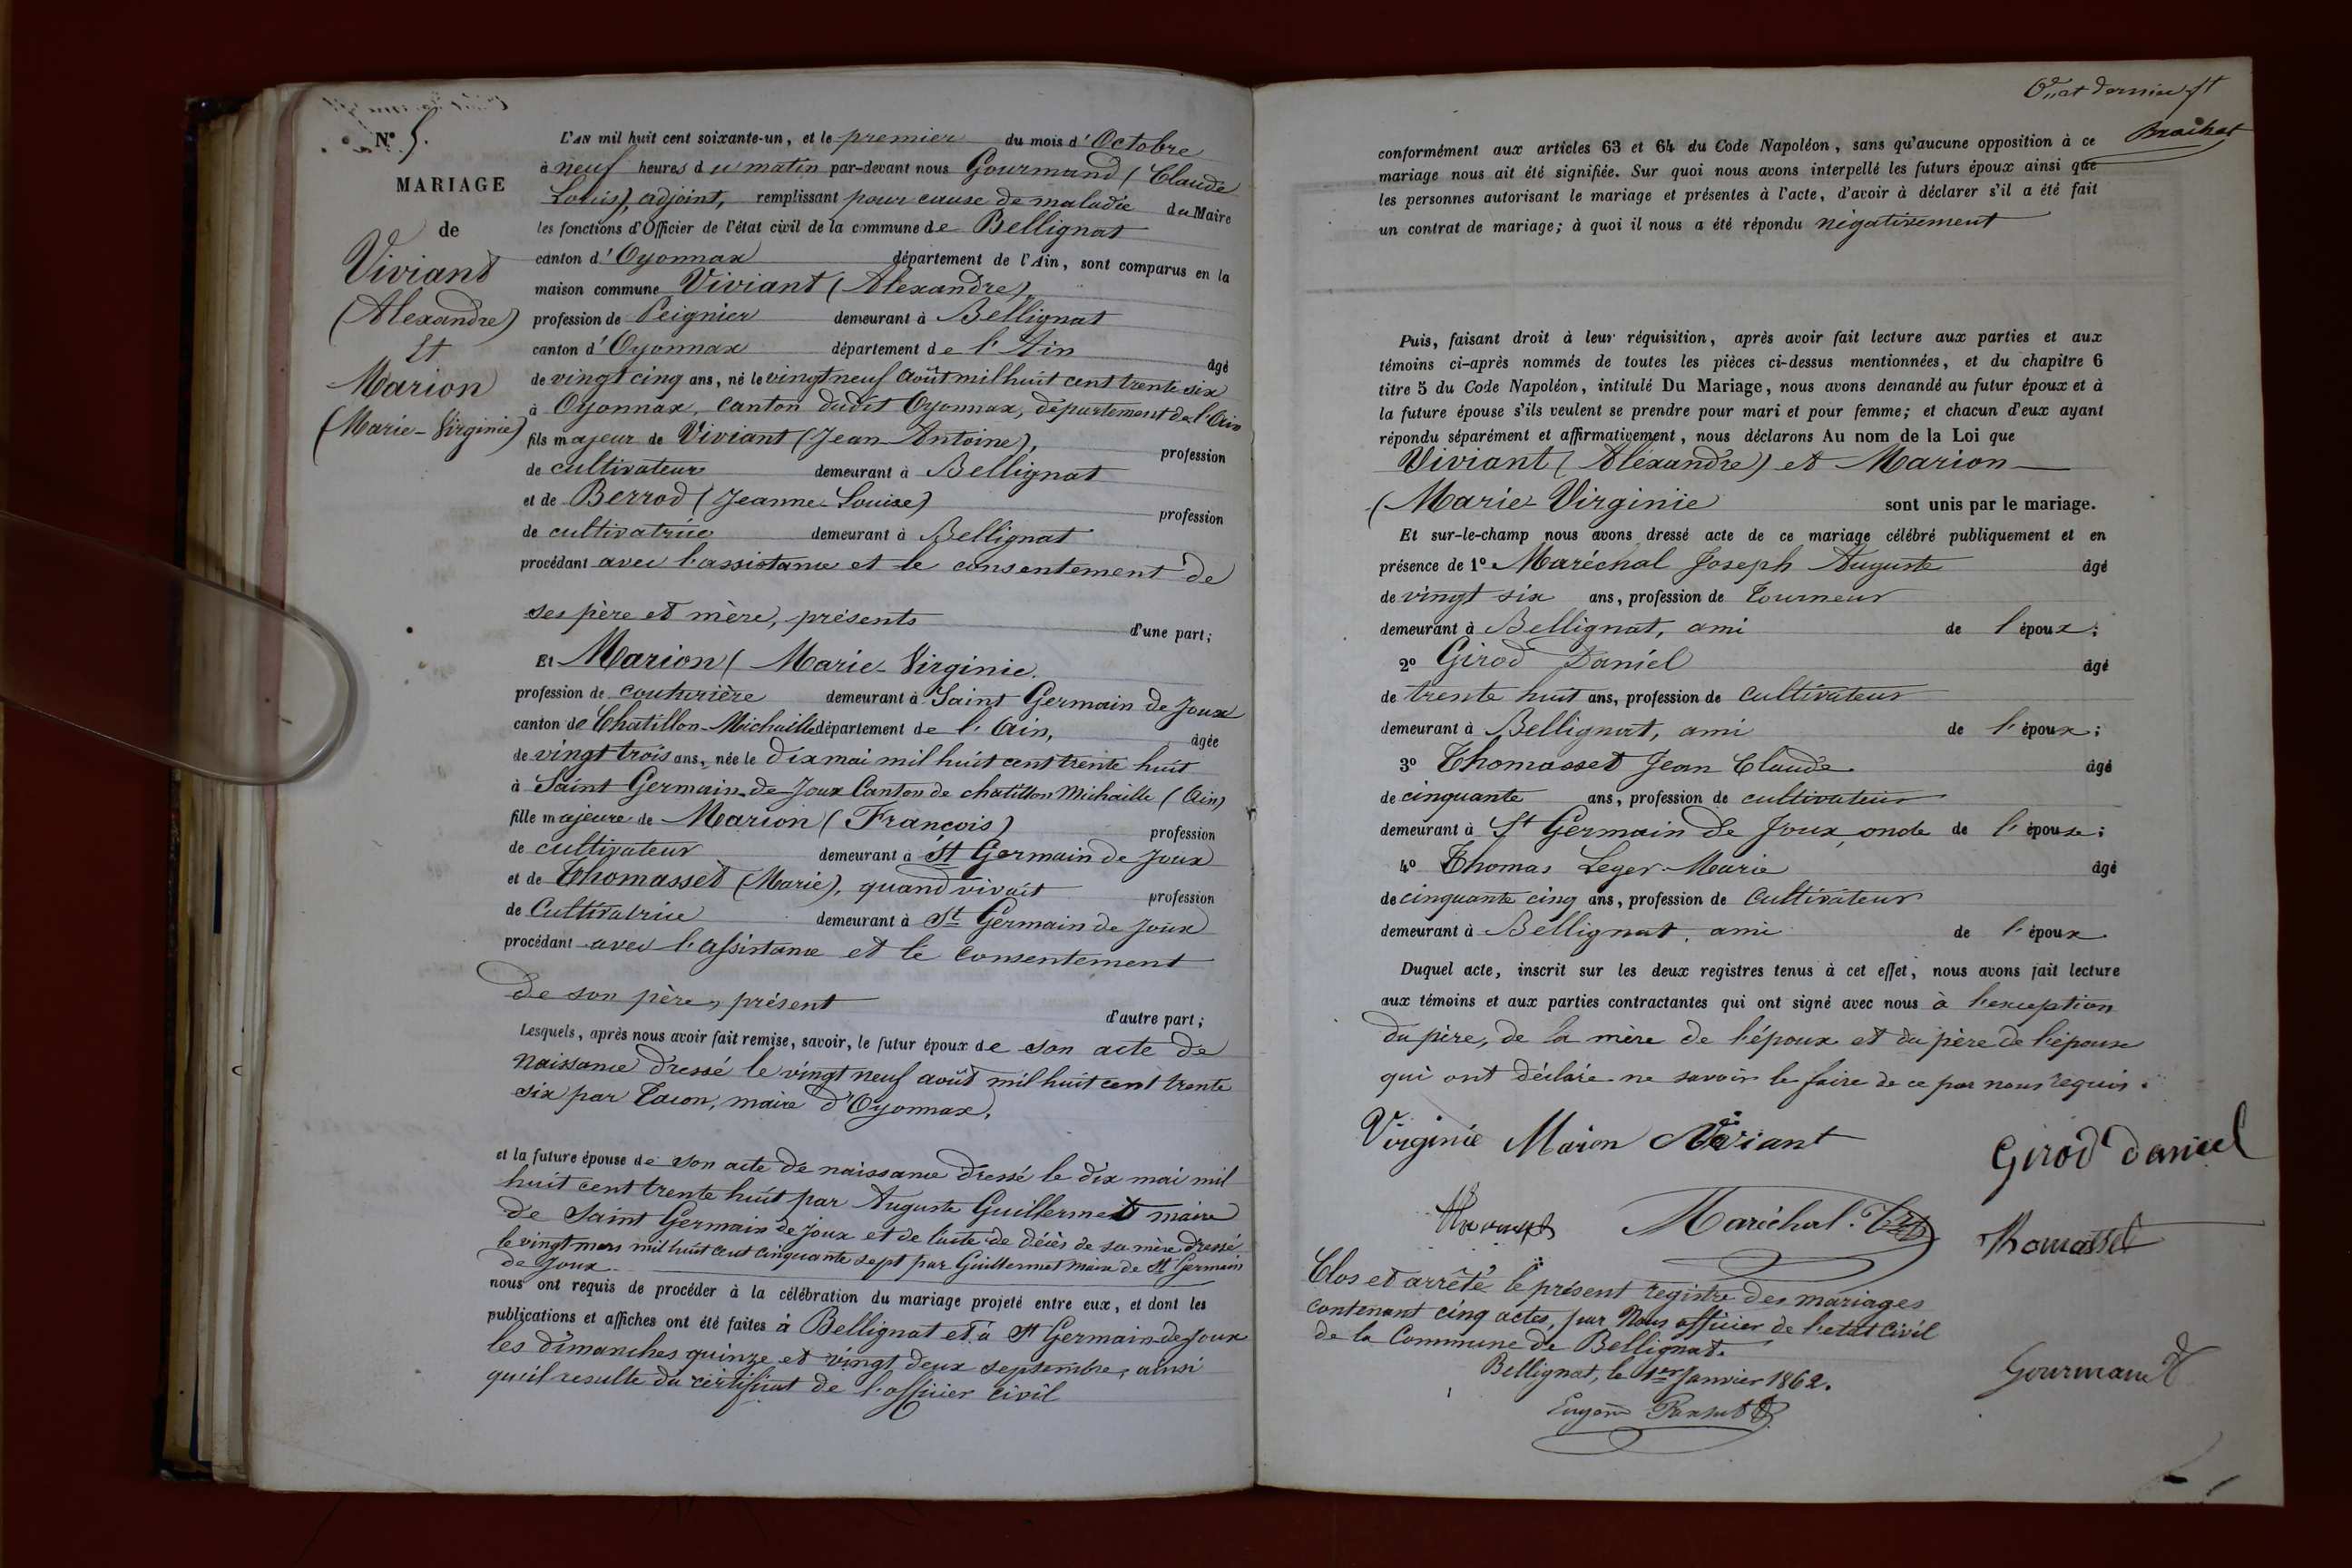 N° 5.
MARIAGE
de
Viviant
(Alexandre)
Et
Marion
(Marie-Virginie)
L'AN mil huit cent soixante-un, et le premier du mois d'Octobre
à neuf heures du matin par-devant nous Gourmand (Claude
Louis), adjoint, remplissant pour cause de maladie du Maire
les fonctions d'Officier de l'état civil de la commune de Bellignat
canton d'Oyonnax département de l'Ain, sont comparus en la
maison commune Viviant (Alexandre),
profession de Peignier demeurant à Bellignat
canton d'Oyonnax département de l'Ain âgé
de vingt cinq ans, né le vingt neuf août mil huit cent trente six
à Oyonnax, canton dudit Oyonnax, département de l'Ain
fils majeur de Viviant (Jean-Antoine), profession
de cultivateur demeurant à Bellignat
et de Berrod (Jeanne-Louise) profession
de cultivatrice demeurant à Bellignat
procédant avec l'assistance et le consentement de
ses père et mère, présents d'une part;
Et Marion (Marie-Virginie.
profession de couturière demeurant à Saint Germain de Joux
canton de Chatillon-Michaille département de l'Ain, âgée
de vingt trois ans, née le dix mai mil huit cent trente huit
à Saint Germain-de-Joux Canton de chatillon Michaille (Ain)
fille majeure de Marion (François) profession
de cultivateur demeurant à St Germain de Joux
et de Thomasset (Marie), quand vivait profession
de Cultivatrice demeurant à St Germain de Joux
procédant avec l'assistance et le consentement
de son père, présent d'autre part;
Lesquels, après nous avoir fait remise, savoir, le futur époux de son acte de
naissance dressé le vingt neuf août mil huit cent trente
six par Tacon, maire d'Oyonnax,
et la future épouse de son acte de naissance dressé le dix mai mil
huit cent trente huit par Auguste Guillermet maire
de Saint Germain de Joux et de l'acte de décès de sa mère dressé
le vingt mars mil huit cent cinquante sept par Guillermet maire de St Germain
de Joux
nous ont requis de procéder à la célébration du mariage projeté entre eux, et dont les
publications et affiches ont été faites à Bellignat et à St Germain-de-Joux
les dimanches quinze et vingt deux septembre, ainsi
qu'il resulte du certificat de l'officier civil
et dernier ft
Brachet
conformément aux articles 63 et 64 du Code Napoléon, sans qu'aucune opposition à ce
mariage nous ait été signifiée. Sur quoi nous avons interpellé les futurs époux ainsi que
les personnes autorisant le mariage et présentes à l'acte, d'avoir à déclarer s'il a été fait
un contrat de mariage; à quoi il nous a été répondu négativement
Puis, faisant droit à leur réquisition, après avoir fait lecture aux parties et aux
témoins ci-après nommés de toutes les pièces ci-dessus mentionnées, et du chapitre 6
titre 5 du Code Napoléon, intitulé Du Mariage, nous avons demandé au futur époux et à
la future épouse s'ils veulent se prendre pour mari et pour femme; et chacun d'eux ayant
répondu séparément et affirmativement, nous déclarons Au nom de la Loi que
Viviant (Aléxandre) et Marion
(Marie-Virginie sont unis par le mariage.
Et sur-le-champ nous avons dressé acte de ce mariage célébré publiquement et en
présence de 1° Maréchal Joseph Auguste âgé
de vingt six ans, profession de Tourneur
demeurant à Bellignat, ami de l'époux;
2° Girod Daniel âgé
de trente huit ans, profession de cultivateur
demeurant à Bellignat, ami de l'époux;
3° Thomasset Jean Claude âgé
de cinquante ans, profession de cultivateur
demeurant à St Germain de Joux, oncle de l'épouse;
4° Thomas Leger-Marie âgé
de cinquante cinq ans, profession de Cultivateur
demeurant à Bellignat, ami de l'époux
Duquel acte, inscrit sur les deux registres tenus à cet effet, nous avons fait lecture
aux témoins et aux parties contractantes qui ont signé avec nous à l'exception
du père, de la mère de l'époux et du père de l'épouse
qui ont déclaré ne savoir le faire de ce par nous requis.
Virginie Marion Viviant
Girod daniel
Maréchal
Thomasset
Clos et arrêté le présent registre des mariages
contenant cinq actes, par Nous officier de l'état civil
de la Commune de Bellignat.
Bellignat, le 1er Janvier 1862.
Gourmand